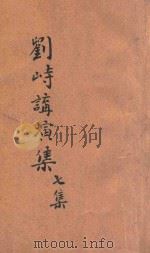 劉峙講演集
七集
mtoou.info